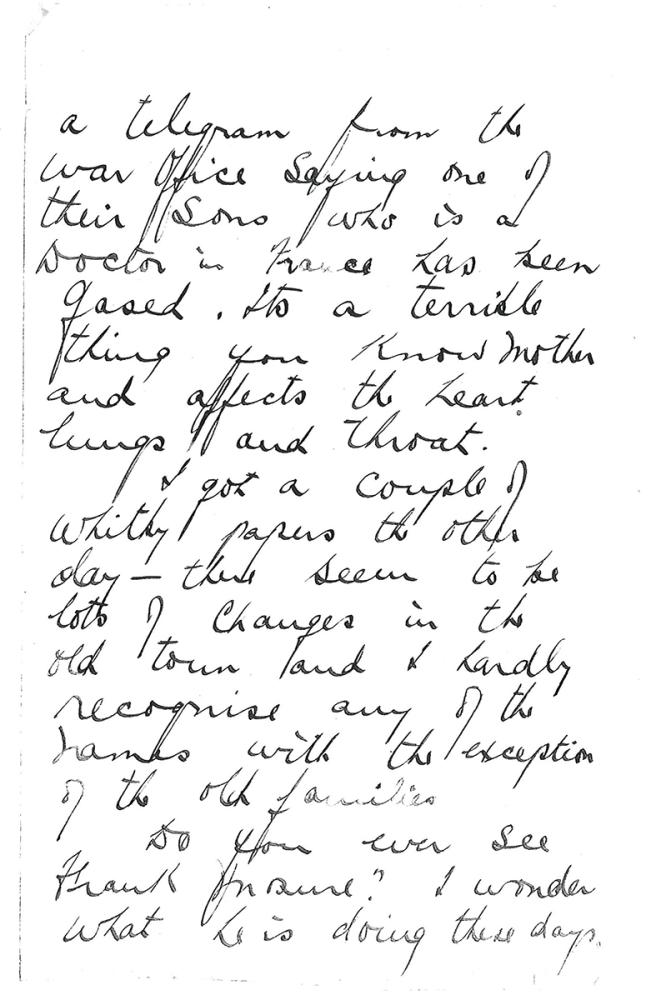 a telegram from the
War Office Saying one of
their Sons who is a
Doctor in France has been
gased. Its a terrible
thing you know Mother
and affects the heart
lungs and throat.
I got a couple of
Whitby papers the other
day — there seem to be
lots of Changes in the
old town and I hardly
recognise any of the
names with the exception
of the old families
Do you ever see
Frank ? I wonder
what he is doing these days.